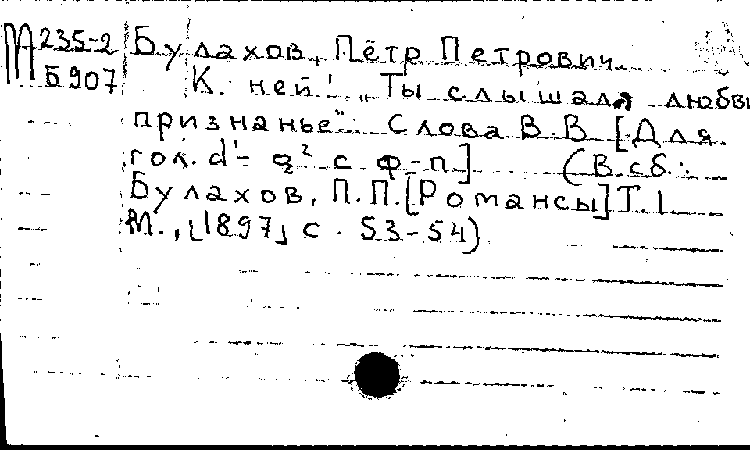 М 235-2 Булахов, Пётр Петрович.
Б 907 К ней! „Ты слышала любви
признанье". Слова В.В. [Для
гол. d¹- g² с ф-п] (В сб.:
Булахов, П.П. [Романсы] Т.1
М., [1897] с. 53-54)